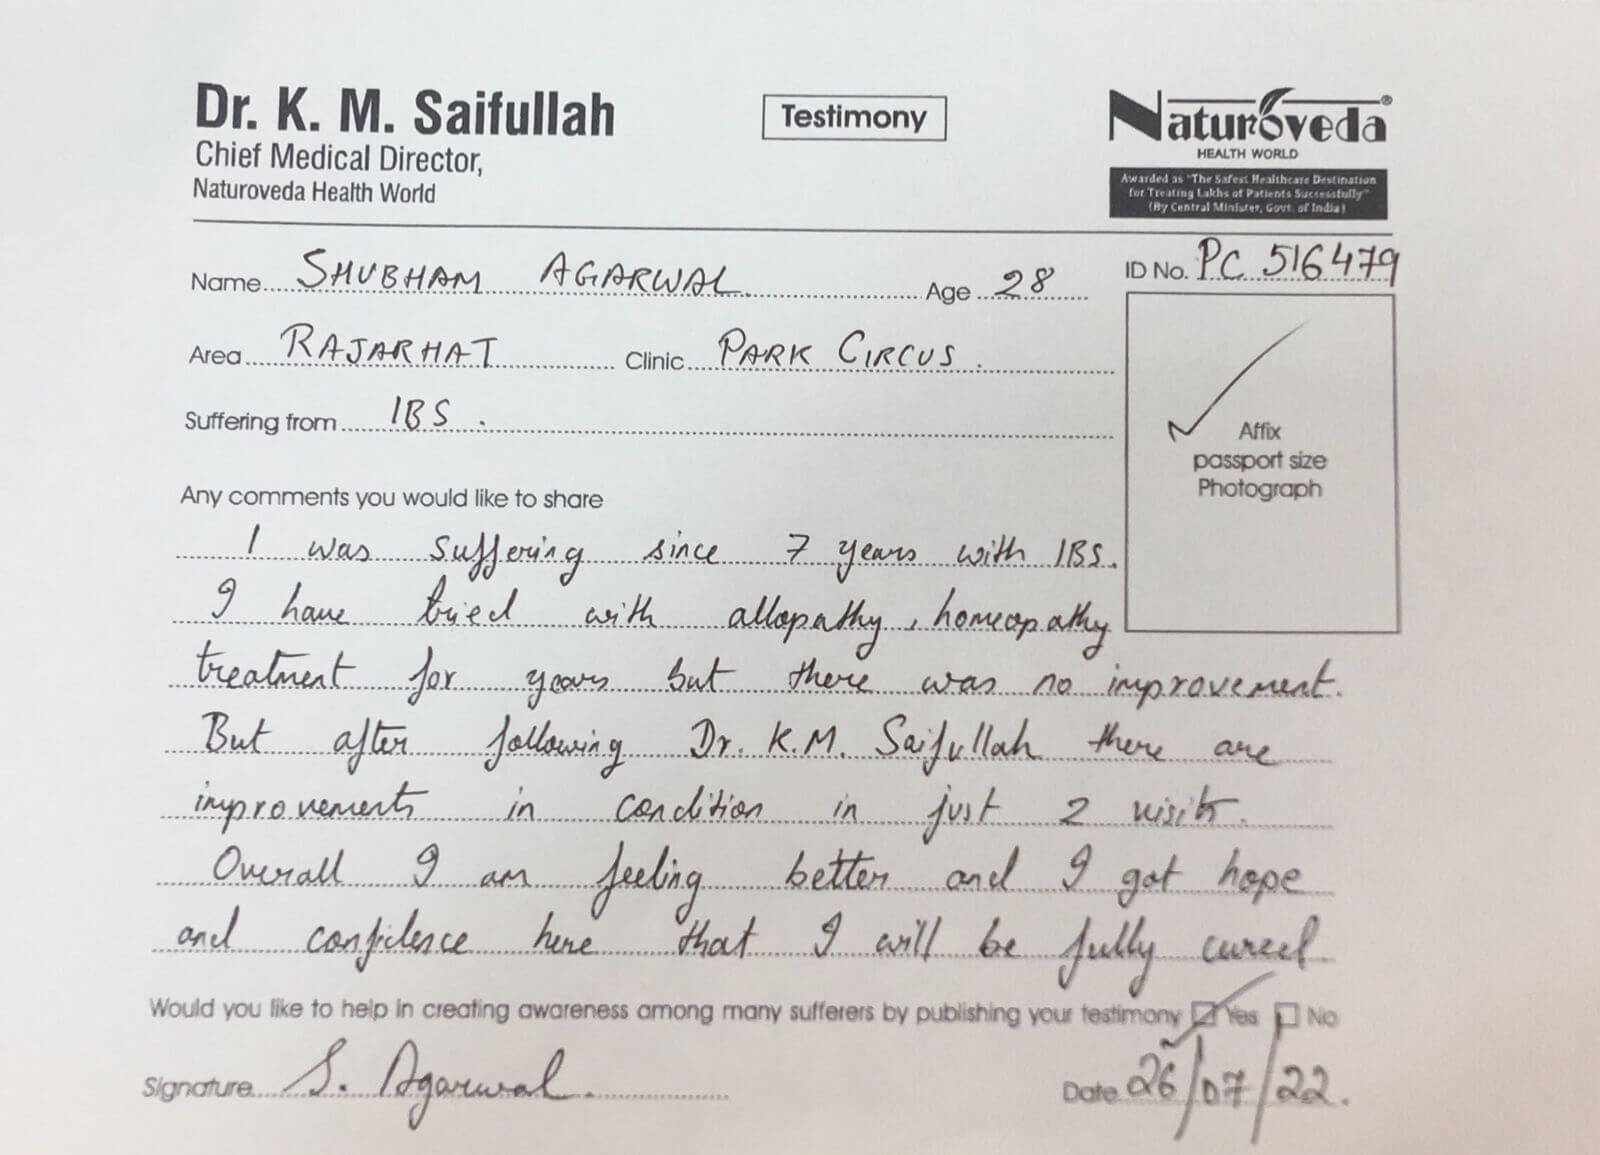 Dr. K. M. Saifullah
Chief Medical Director,
Naturoveda Health World
Testimony
Naturoveda®
HEALTH WORLD
Awarded as "The Safest Healthcare Destination
for Treating Lakhs of Patients Successfully"
(By Central Minister, Govt. of India)
Name SHUBHAM AGARWAL Age 28
ID No. PC 516479
Area RAJARHAT Clinic PARK CIRCUS.
Suffering from IBS.
Affix
passport size
Photograph
Any comments you would like to share
I was suffering since 7 years with IBS.
I have tried with allopathy, homeopathy
treatment for years but there was no improvement.
But after following Dr. K.M. Saifullah there are
improvements in condition in just 2 visits.
Overall I am feeling better and I got hope
and confidence here that I will be fully cured.
Would you like to help in creating awareness among many sufferers by publishing your testimony Yes No
Signature S. Agarwal.
Date 26/07/22.